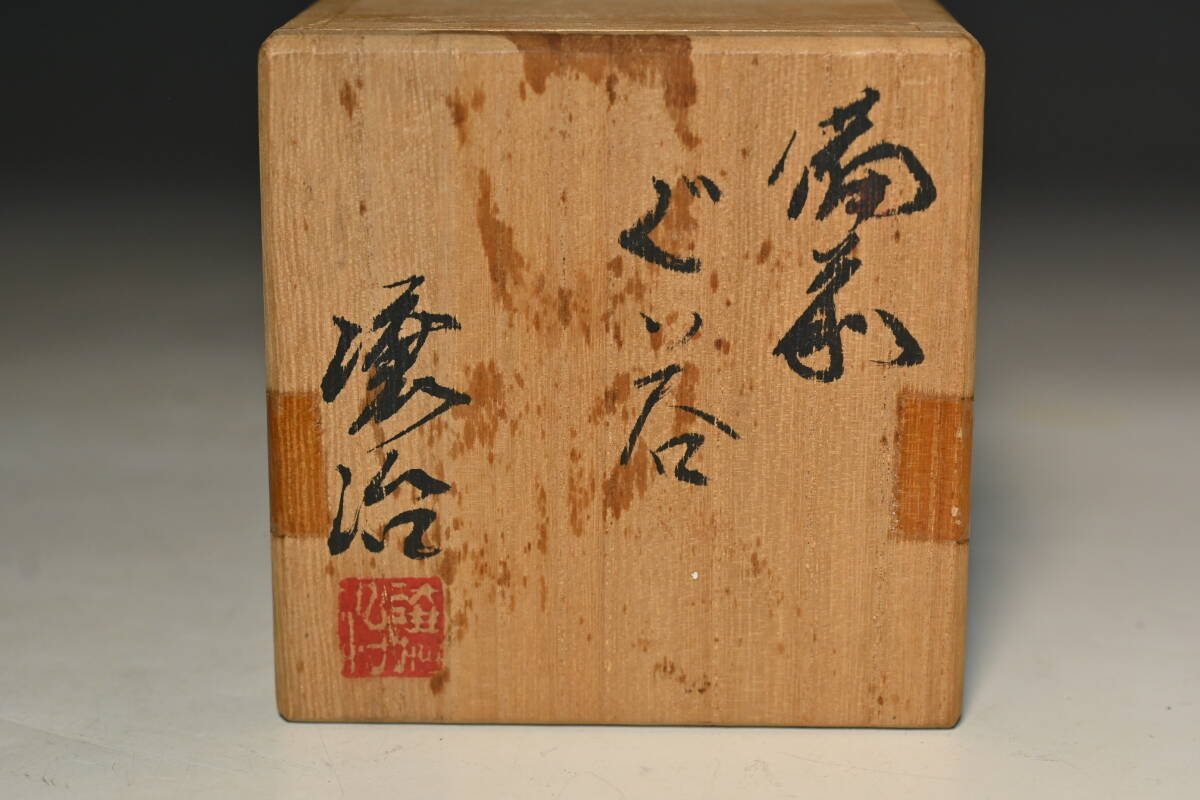 備前
ぐい呑
譲治